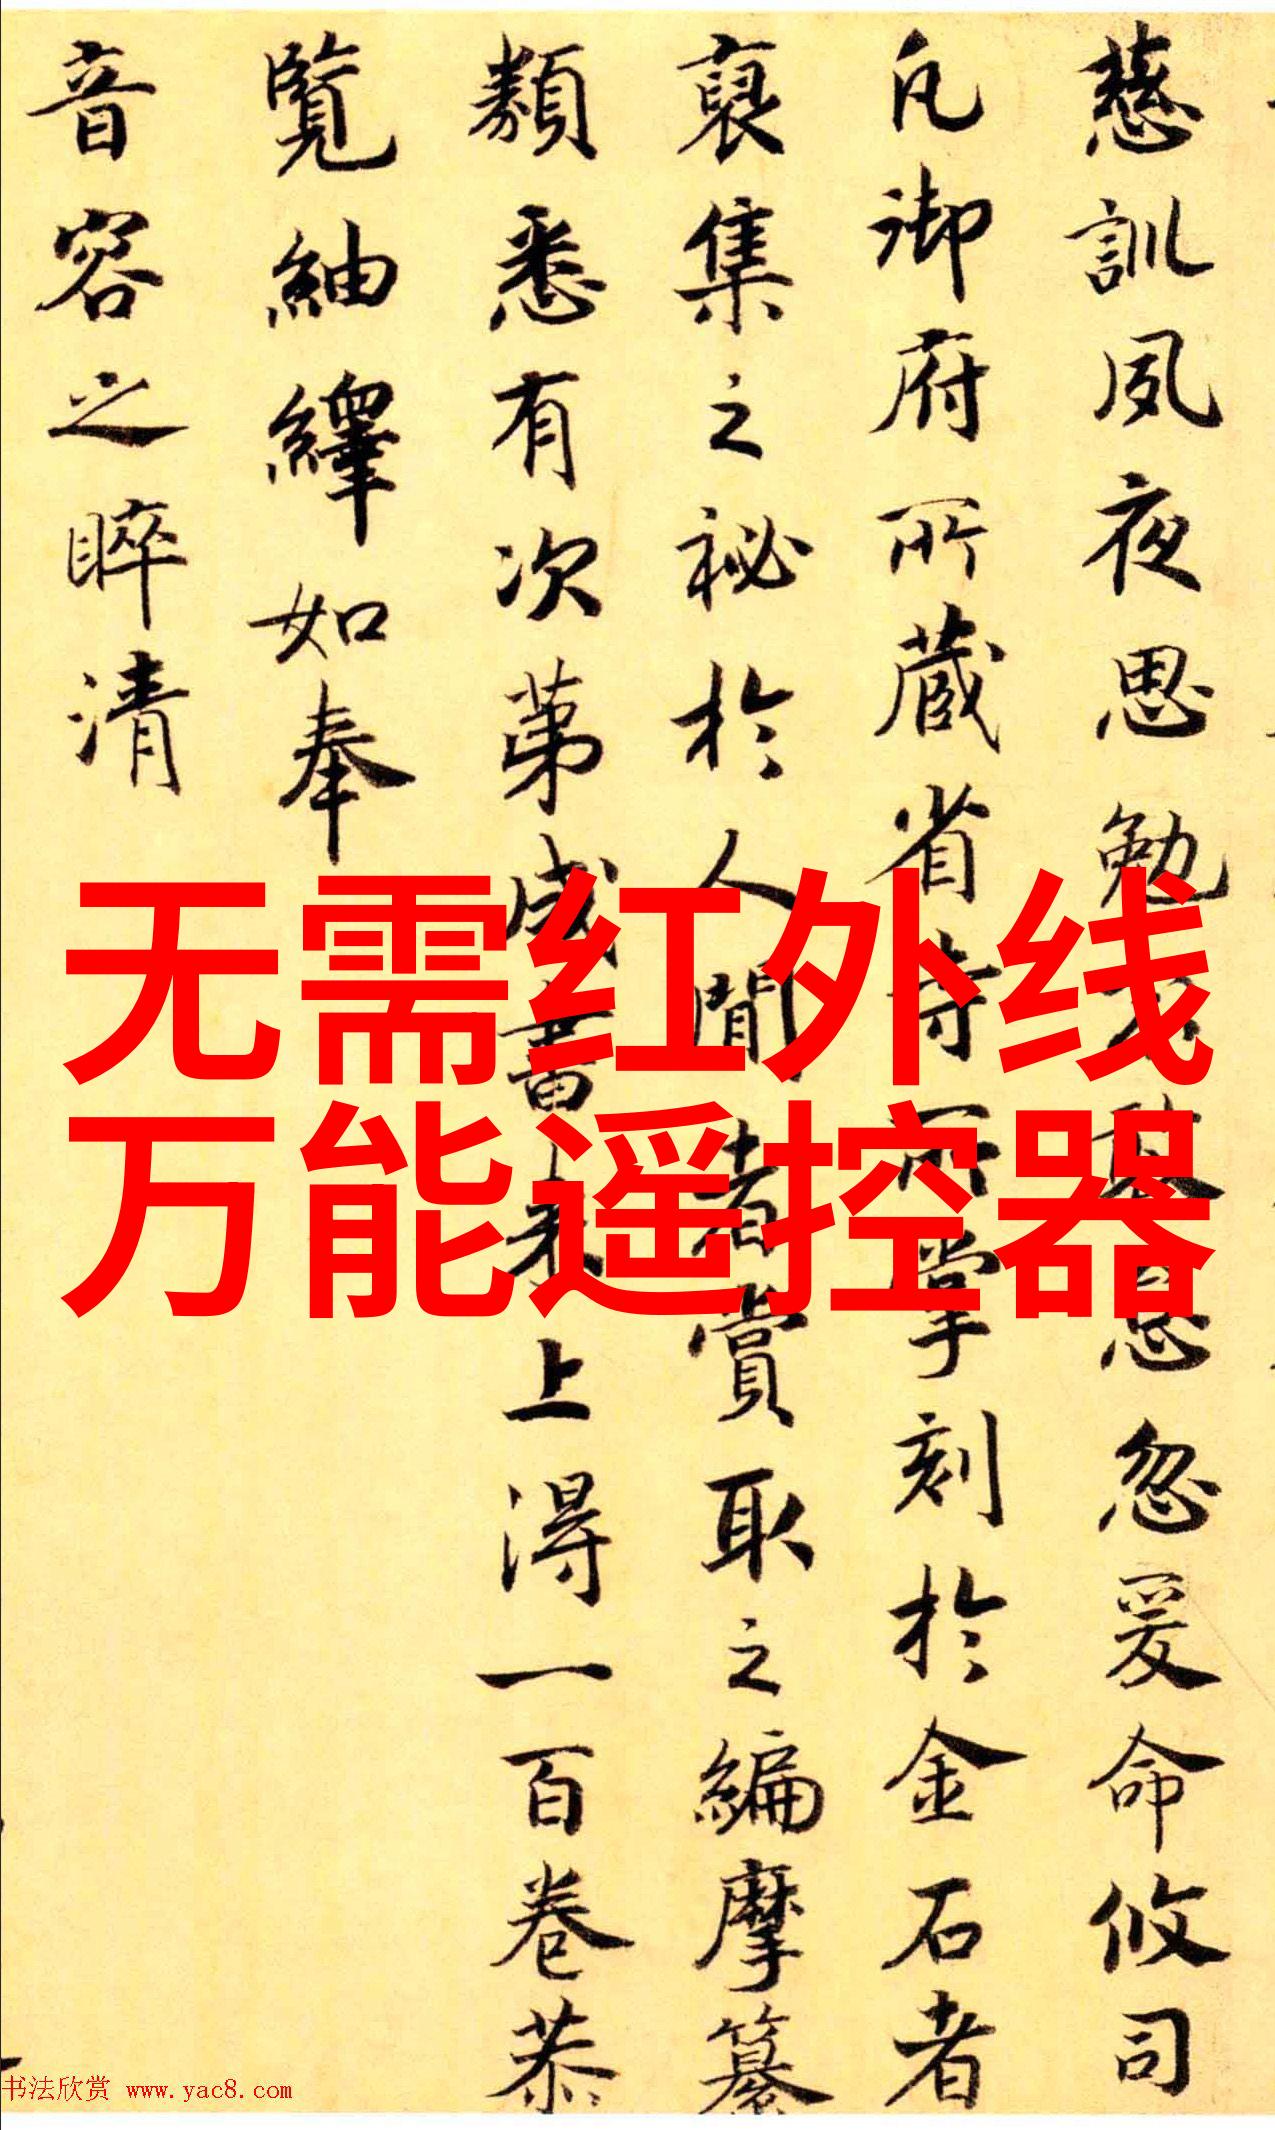 慈訓夙夜思勉不敢怠忽爰命攸司
凡御府所藏省寺所掌刻於金石者
裒集之祕於人間者賞取之編摩纂
類悉有次第成書來上得一百卷恭
覽紬繹如奉
音容之睟清
无需红外线
万能遥控器
书法欣赏 www.yac8.com